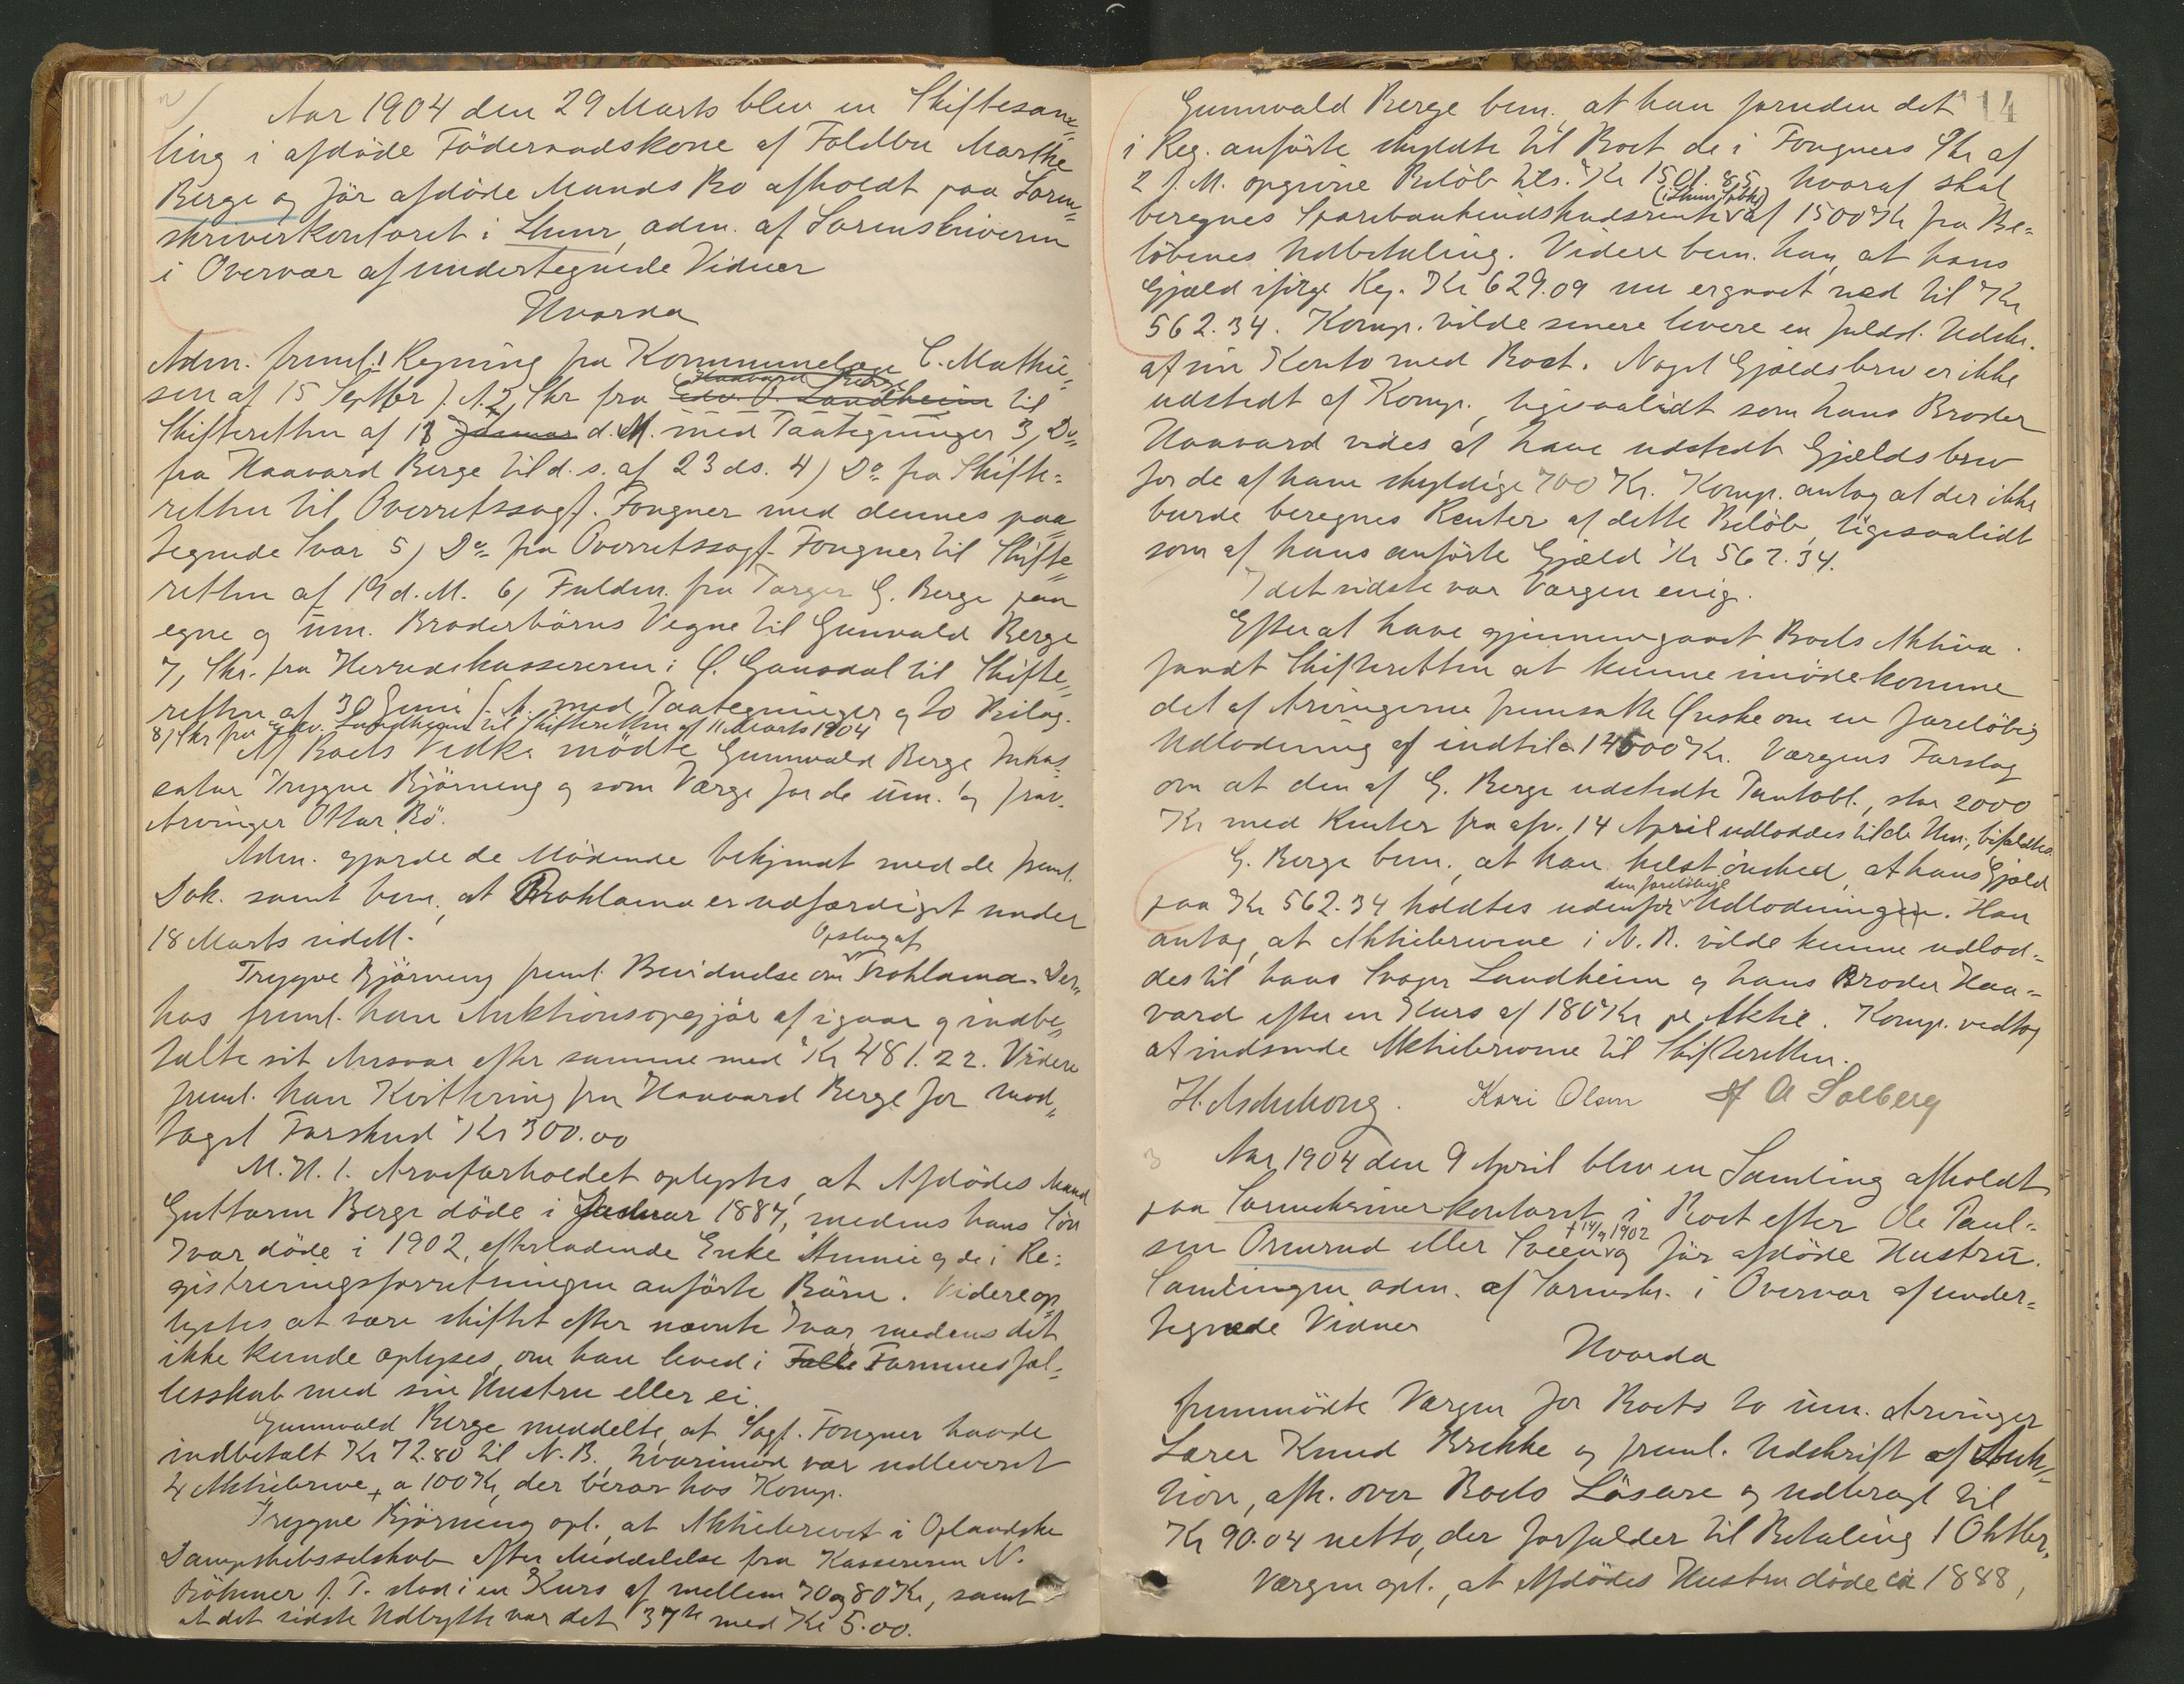 Aar 1904 den 29 Marts blev en Skiftesam=
ling i afdöde Föderaadskone af Foldbu Marthe
Berge og för afdöde Mands Bo afholdt paa Soren=
skriverkontoret i Lunner, adm. af Sorenskriveren
i Overvær af undertegnede Vidner
Hvorda
Adm. freml. 1 Regning fra Kommunelæge C. Mathie=
sen af 15 Septbr f. A. 2, Skr fra Haavard Berge til
Skifteretten af 13 d. M. med Paategninger 3, Do
fra Haavard Berge til d. s. af 23 ds. 4) Do fra Skifte=
retten til Overretssagf. Fougner med dennes paa
tegnede Svar 5) Do fra Overretssagf. Fougner til Skifte
retten af 19 d. M. 6, Fuldm. fra Torger G. Berge paa
egne og um. Broderbörns Vegne til Gunvald Berge
7, Skr. fra Herredskassereren i Ö. Gausdal til Skifte=
retten af 30 Juni f. A. med Paategninger og 20 Bilag.
8) Skr fra Edv. Landheim til Skifteretten af 11 Marts 1904
Af Boets Vedk. mödte Gunnvald Berge Inkas=
sator Trygve Björneng og som Værge for de um. og frav.
Arvinger Ottar Bö.
Adm. gjorde de Mödende bekjendt med de freml.
Dok. samt bem. at Proklama er udfærdiget under
18 Marts sidstl.
Opslag af
Trygve Björneng freml. Bevidnelse om Proklama. Der=
hos freml. han Auktionsopgjör af igaar og indbe=
talte sit Ansvar efter samme med Kr 481.22. Videre
freml. han Kvittering fra Haavard Berge for mod=
taget Forskud Kr 300.00
M. H. t. Arveforholdet oplystes, at Afdödes Mand
Guttorm Berge döde i Januar 1887, medens hans Sön
Ivar döde i 1902, efterladende Enke Annie og de i Re=
gistreringsforretningen anförte Börn. Videre op=
lystes at være skiftet efter nævnte Ivar medens det
ikke kunde oplyses, om han leved i Formuesfæl=
lesskab med sin Hustru eller ei.
Gunnvald Berge meddelte, at Sagf. Fougner havde
indbetalt Kr 72.80 til N. B. hvorimod var udleveret
4 Aktiebreve a 100 Kr, der beror hos Komp.
Trygve Björneng opl. at Aktiebrevet i Oplandske
Dampskibsselskab efter Meddelelse fra Kassereren N.
Böhmer f. T. stod i en Kurs af mellem 70 og 80 Kr, samt
at det sidste Udbytte var det 37te med Kr 5.00.
14
Gunnvald Berge bem. at han foruden det
i Reg. anförte skyldte til Boet de i Fougners Skr af
2 f. M. opgivne Belöb tils. Kr 1501.85 hvoraf skal
beregnes Sparebankindskudsrente af 1500 Kr fra Be=
löbenes Udbetaling. Videre bem. han, at hans
Gjæld ifölge Reg. Kr 629.09 nu er gaaet ned til Kr
562.34. Komp. vilde senere levere en fuldst. Udskr.
af sin Konto med Boet. Noget Gjældsbrev er ikke
udstedt af Komp. ligesaalidt som hans Broder
Haavard vides at have udstedt Gjældsbrev
for de af ham skyldige 700 Kr. Komp. antog at der ikke
burde beregnes Renter af dette Belöb ligesaalidt
som af hans anförte Gjæld Kr 562.34.
I det sidste var Værgen enig.
Efter at have gjennemgaaet Boets Aktiva
fandt Skifteretten at kunne imödekomme
det af Arvingerne fremsatte Önske om en foreløbig
Udlodning af indtil 14500 Kr. Værgens Forslag
om at den af G. Berge udstedte Pantobl., stor 2000
Kr med Renter fra 14 April udloddes til de Um., bifaldtes.
G. Berge bem., at han helst önsked, at hans Gjæld
den foreløbige
paa Kr 562.34 holdtes udenfor Udlodningen. Han
antog, at Aktiebrevene i N. B. vilde kunne udlod=
des til hans Svoger Landheim og hans Broder Haa=
vard efter en Kurs af 180 Kr pr Aktie. Komp. vedtog
at indsende Aktiebrevene til Skifteretten.
H. Aschehoug. Kari Olsen H A Solberg
3 Aar 1904 den 9 April blev en Samling afholdt
paa Sorenskriverkontoret i Boet efter Ole Paul=
† 14/9 1902
sen Onsrud eller Sveen og för afdöde Hustru.
Samlingen adm. af Sorenskr. i Overvær af under=
tegnede Vidner
Hvorda
fremmödte Værgen for Boets to um. Arvinger
Lærer Knud Brekke og freml. Udskrift af Auk=
tion, afh. over Boets Lösøre og udbragt til
Kr 90.04 netto, der forfalder til Betaling 1 Oktbr.
Værgen opl., at Afdödes Hustru döde ca 1888,